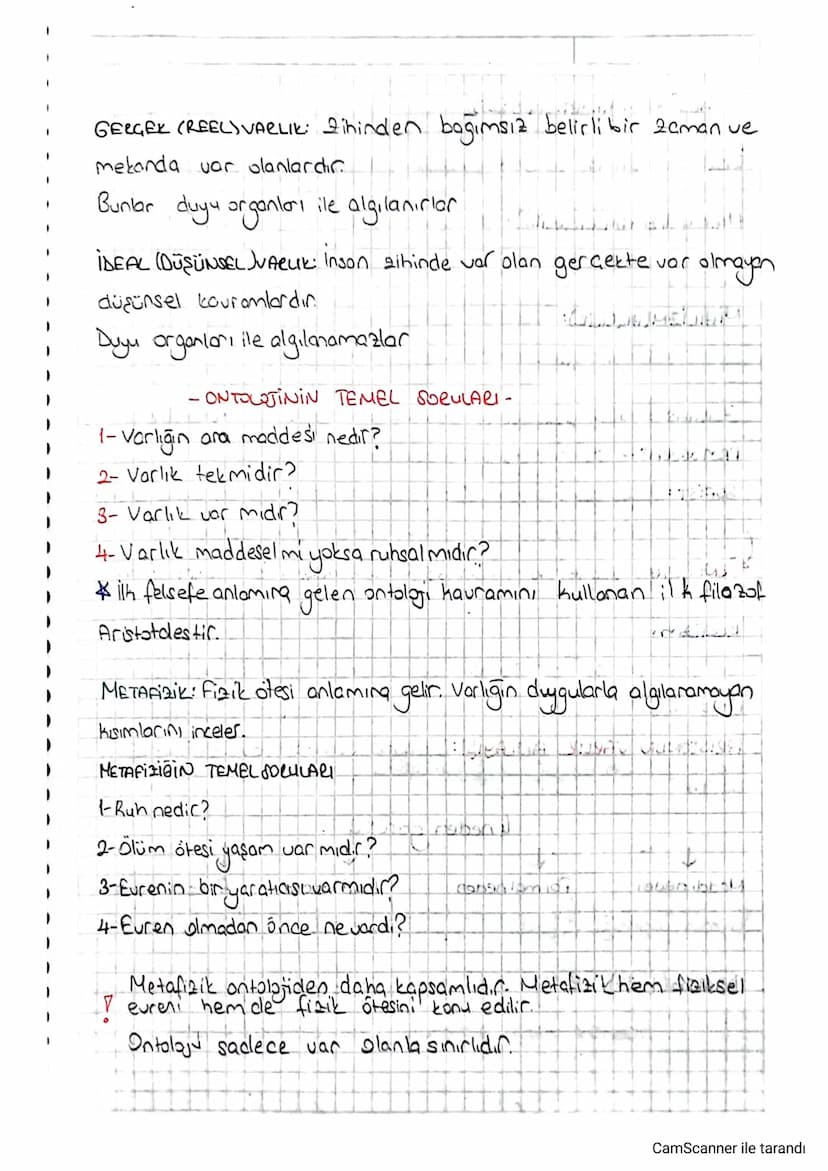 GERÇEK (REEL) VARLIK: Zihinden bağımsız belirli bir zaman ve
mekanda var olanlardır.
Bunlar duyu organları ile algılanırlar
İDEAL (DÜŞÜNSEL) VARLIK: İnsan zihinde var olan gerçekte var olmayan
düşünsel kavramlardır.
Duyu organları ile algılanamazlar
- ONTOLOJİNİN TEMEL SORULARI -
1- Varlığın ana maddesi nedir?
2- Varlık tekmidir?
3- Varlık var mıdır?
4- Varlık maddesel mi yoksa ruhsal mıdır?
* İlk felsefe anlamına gelen ontoloji kavramını kullanan ilk filozof
Aristotalestir.
METAFİZİK: Fizik ötesi anlamına gelir. Varlığın duygularla algılanamayan
kısımlarını inceler.
METAFİZİĞİN TEMEL SORULARI
1-Ruh nedir?
2-Ölüm ötesi yaşam var mıdır?
3-Evrenin bir yaratıcısı varmıdır?
4-Evren olmadan önce ne vardı?
Metafizik ontolojiden daha kapsamlıdır. Metafizik hem fiziksel
! evreni hem de fizik ötesini konu edilir.
Ontoloji sadece var olanla sınırlıdır.
CamScanner ile tarandı